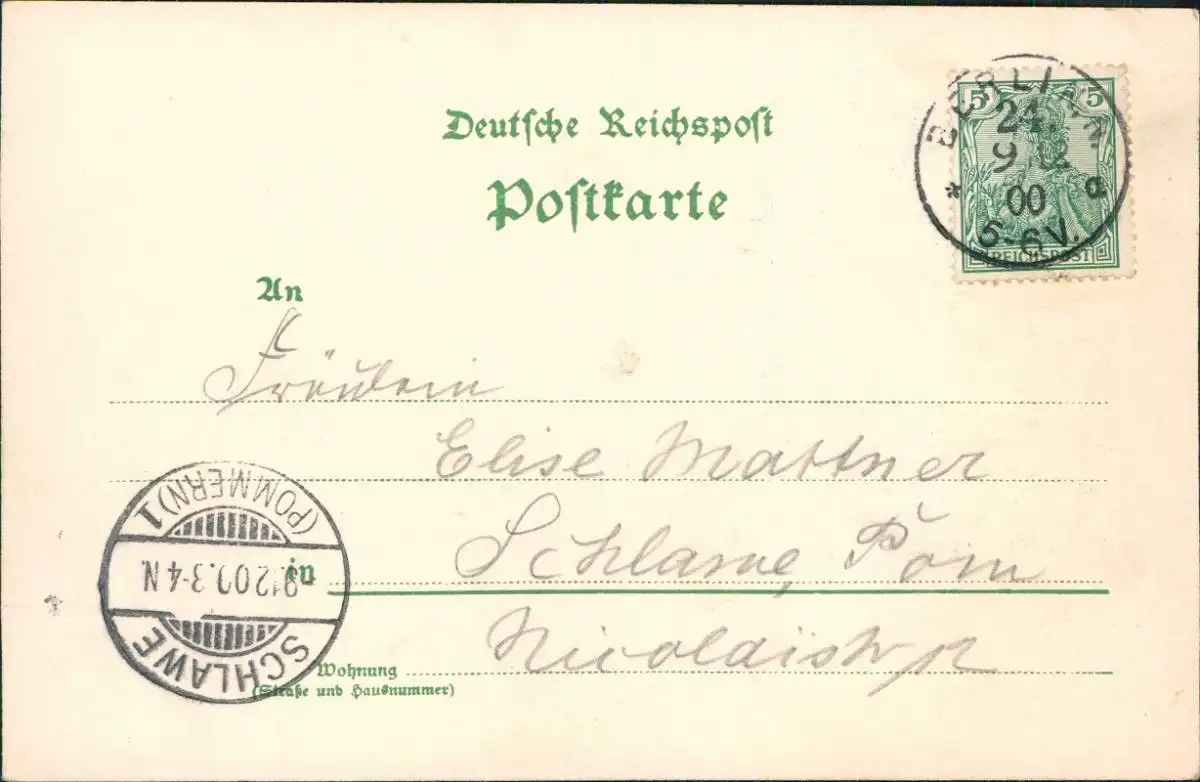 Deutsche Reichspost
Postkarte
5 5
REICHSPOST
BERLIN N.
24.
9 12
00
5-6 V.
* a
An
Fräulein
Elise Mattner
in Schlawe, Pom
Nicolaistr
Wohnung
(Straße und Hausnummer)
SCHLAWE
9 12 00. 3-4 N.
(POMMERN) 1